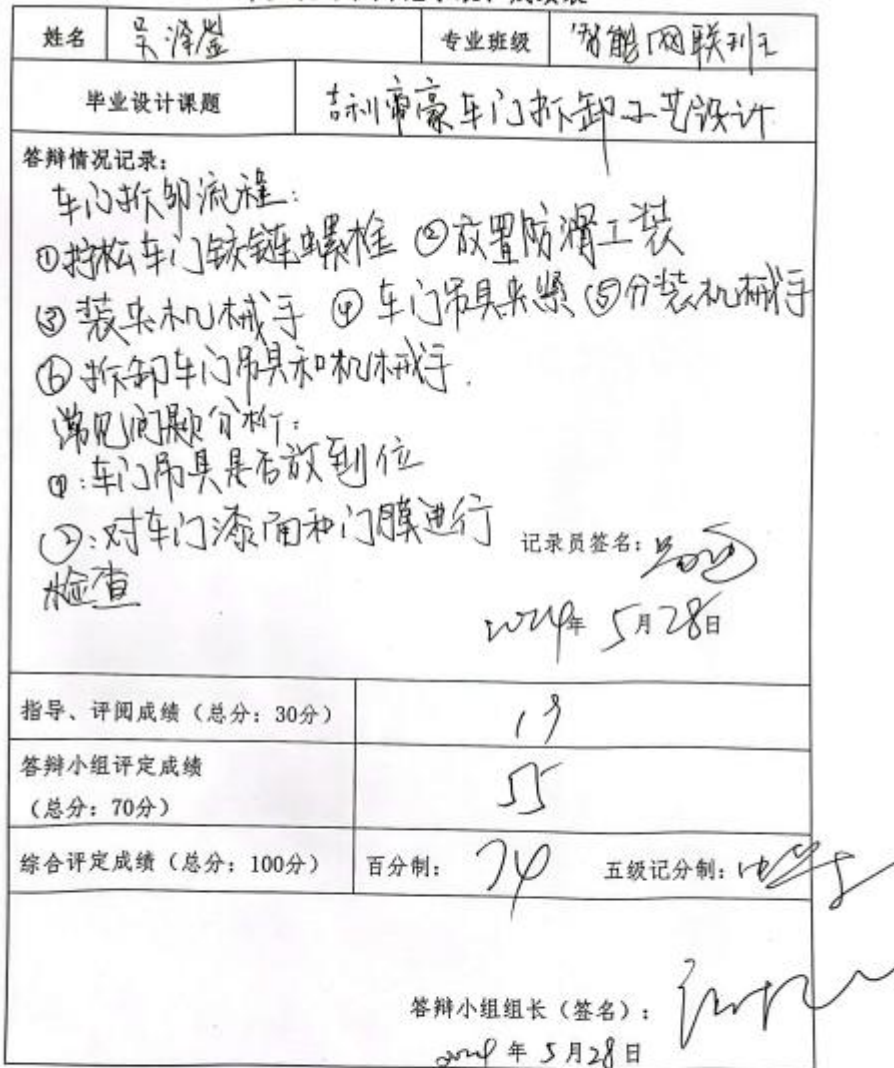 姓名 吴泽莹 专业班级 智能网联2班
毕业设计课题 吉利帝豪车门拆卸工艺设计
答辩情况记录:
车门拆卸流程:
①拧松车门铰链螺栓 ②放置防滑工装
③装夹机械手 ④车门吊具夹紧 ⑤分装机械手
⑥拆卸车门吊具和机械手.
常见问题分析:
①:车门吊具是否放到位
②:对车门漆面和门膜进行
检查
记录员签名:
2024年 5月28日
指导、评阅成绩(总分:30分) 19
答辩小组评定成绩 55
(总分:70分)
综合评定成绩(总分:100分) 百分制: 74 五级记分制: 中等
答辩小组组长(签名):
2024年5月28日